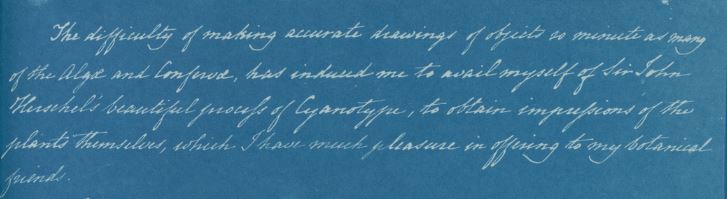 The difficulty of making accurate drawings of objects so minute as many
of the Algæ and Confervæ, has induced me to avail myself of Sir John
Herschel's beautiful process of Cyanotype, to obtain impressions of the
plants themselves, which I have much pleasure in offering to my botanical
friends.